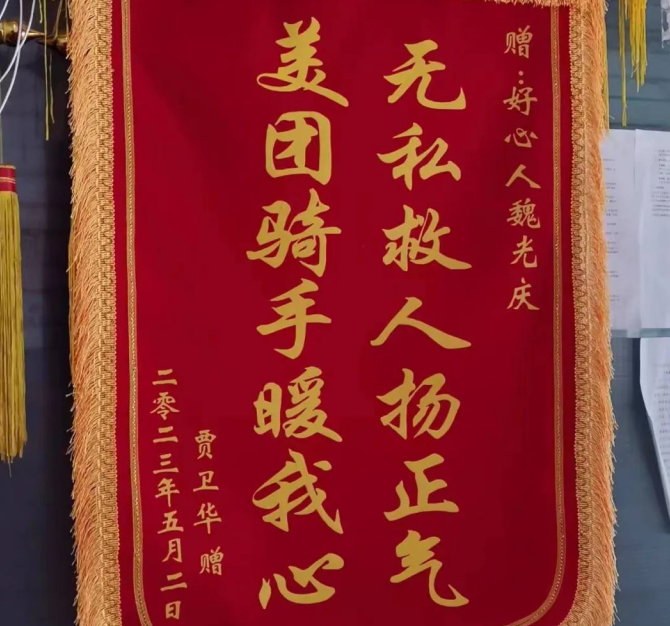 赠：好心人魏光庆
无私救人扬正气
美团骑手暖我心
贾卫华 赠
二零二三年五月二日